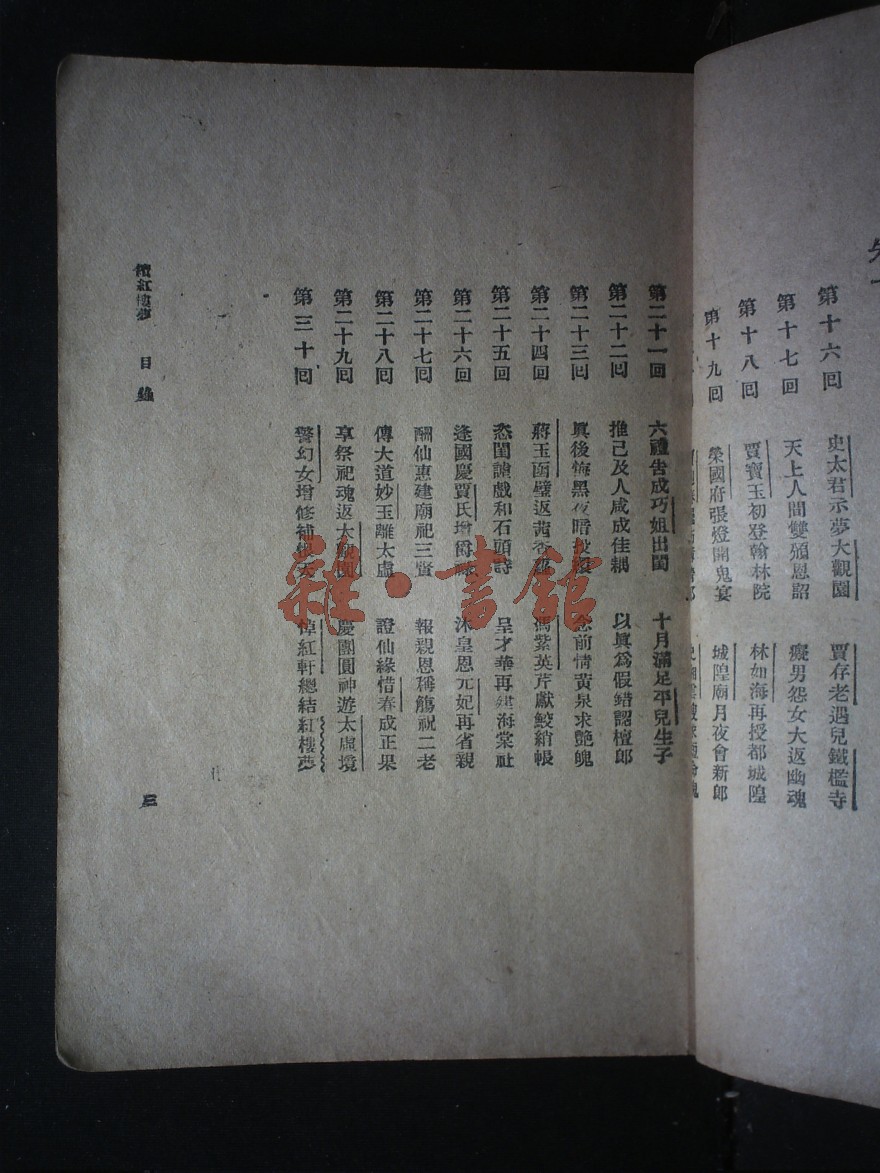 第十六回 史太君示夢大觀園 賈存老遇兒鐵檻寺
第十七回 天上人間雙頒恩詔 癡男怨女大返幽魂
第十八回 賈寶玉初登翰林院 林如海再授都城隍
第十九回 榮國府張燈開鬼宴 城隍廟月夜會新郎
第二十一回 六禮告成巧姐出閨 十月滿足平兒生子
第二十二回 推己及人咸成佳耦 以眞爲假錯認檀郎
第二十三回 眞後悔黑夜暗投 念前情黃泉求艷魄
第二十四回 蔣玉函璧返茜香 馮紫英芹獻鮫綃帳
第二十五回 恣閨謔戲和石頭詩 呈才華再建海棠社
第二十六回 逢國慶賈氏增爵 沐皇恩元妃再省親
第二十七回 酬仙惠建廟祀三賢 報親恩稱觴祝二老
第二十八回 傳大道妙玉離太虛 證仙緣惜春成正果
第二十九回 享祭祀魂返太觀園 慶團圓神遊太虛境
第三十回 警幻女增修補 悼紅軒總結紅樓夢
續紅樓夢 目錄
三
雜·書館